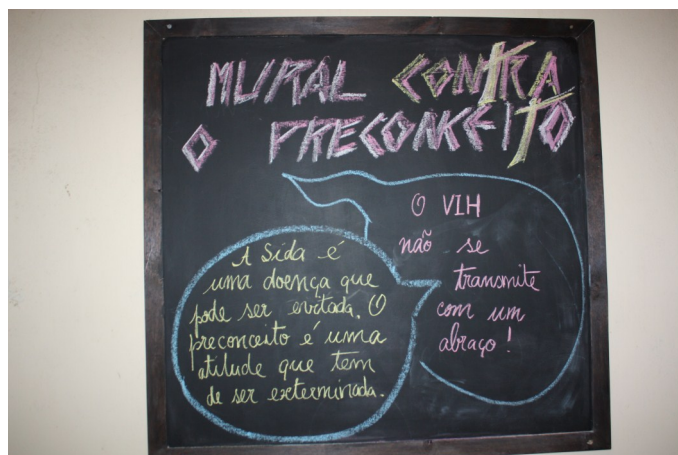 MURAL CONTRA
O PRECONCEITO
O VIH
não se
transmite
com um
abraço!
A Sida é
uma doença que
pode ser evitada. O
preconceito é uma
atitude que tem
de ser exterminada.